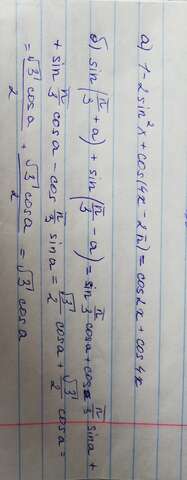 а) 1 - 2 sin²x + cos(4x - 2π) = cos2x + cos4x
б) sin(π/3 + a) + sin(π/3 - a) = sin π/3 cosa + cos π/3 sina +
+ sin π/3 cosa - cos π/3 sina = √3/2 cosa + √3/2 cosa =
= √3 cosa/2 + √3 cosa/2 = √3 cosa